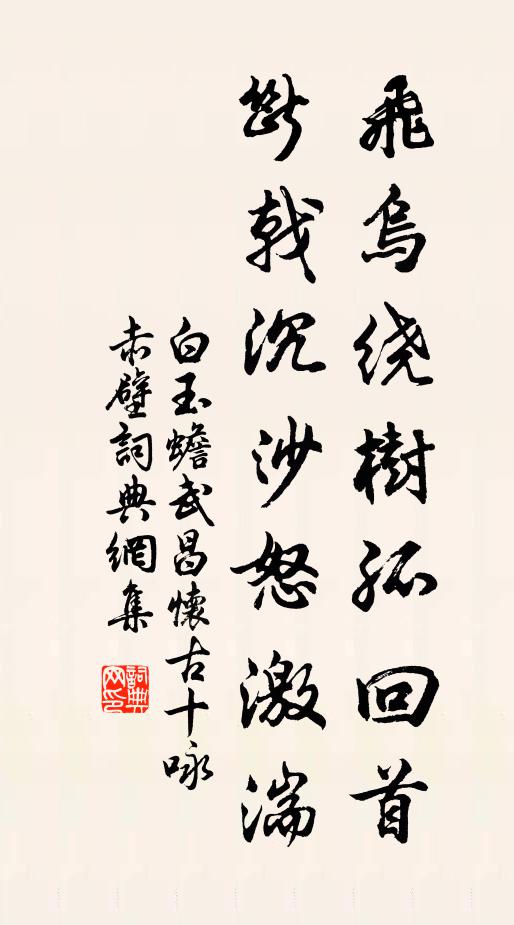 飛烏绕樹孤回首
斷戟沉沙怒激湍
白玉蟾武昌懷古十咏
赤壁詞典網集
詞典
网印